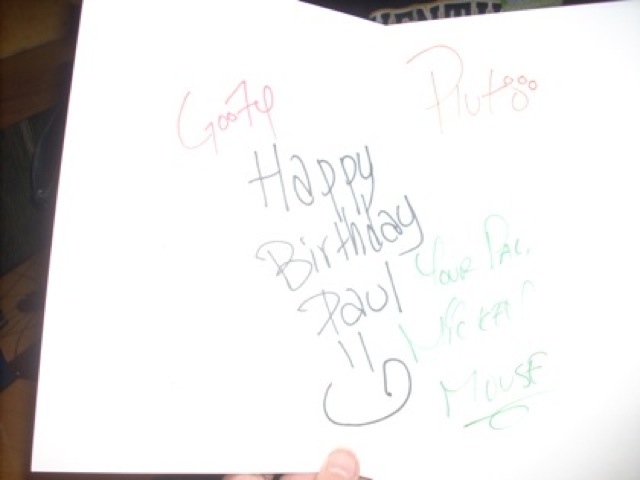 Goofy
Pluto
Happy
Birthday
Paul
Your Pal,
Mickey
Mouse